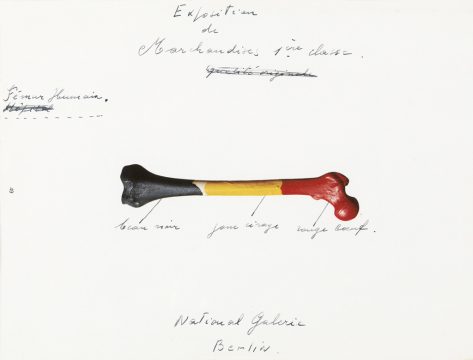 Exposition
de
Marchandises 1ère classe.
qualité originale
Fémur Humain.
beau noir jaune cirage rouge bœuf.
National Galerie
Berlin.